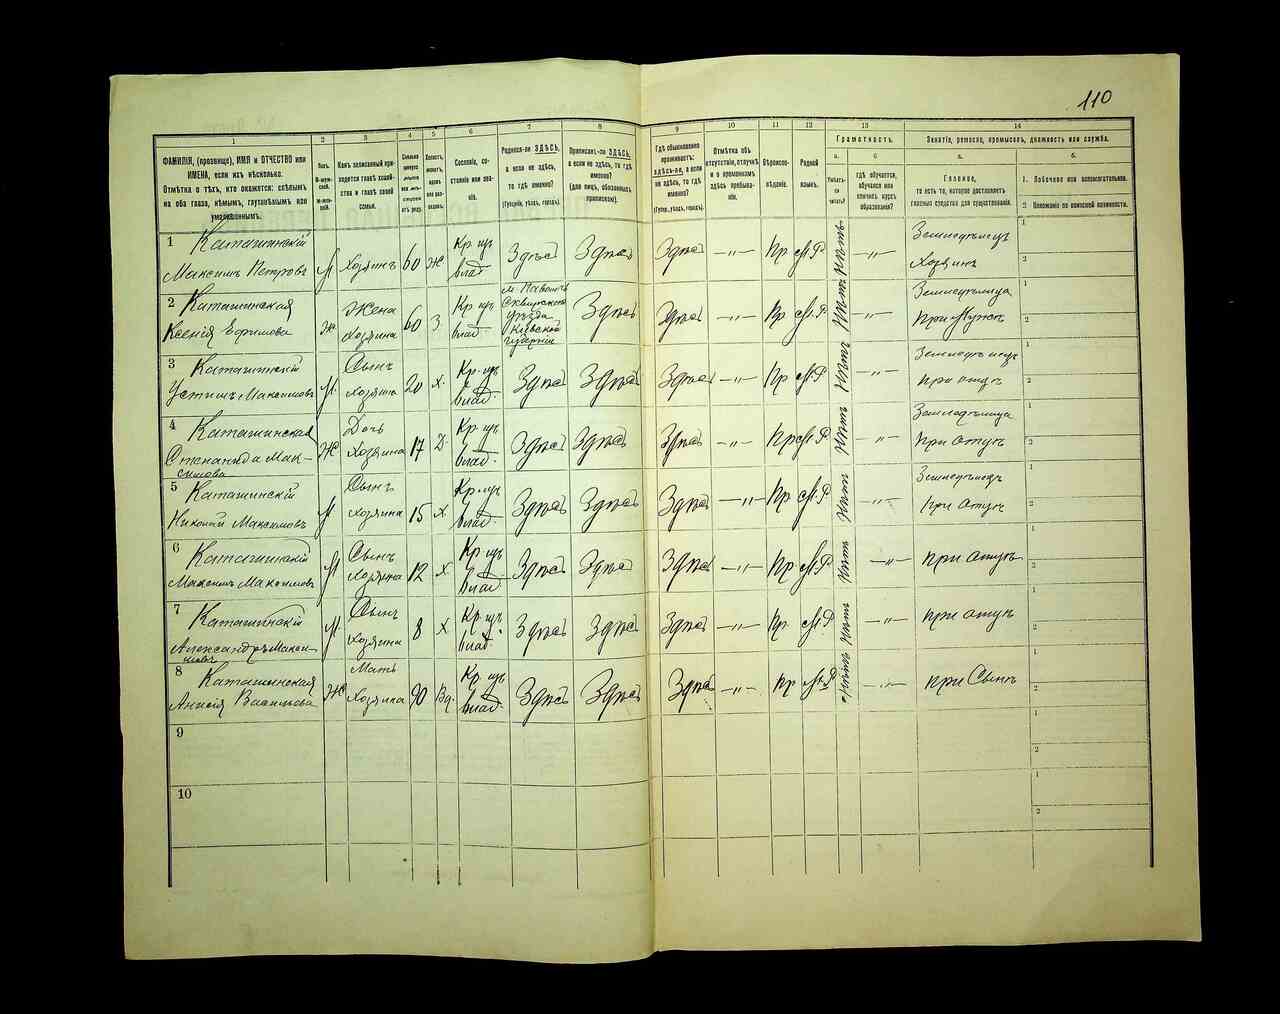 110
1 2 3 4 5 6 7 8 9 10 11 12 13 14
ФАМИЛІЯ, (прозвище), ИМЯ и ОТЧЕСТВО или
ИМЕНА, если ихъ нѣсколько.
Отмѣтка о тѣхъ, кто окажется: слѣпымъ
на оба глаза, нѣмымъ, глухонѣмымъ или
умалишеннымъ.
Полъ.
Какъ записанный при-
ходится главѣ хозяй-
ства и главѣ своей
семьи.
Сословіе, со-
стояніе или зва-
ніе.
Родился-ли ЗДѢСЬ,
а если не здѣсь,
то гдѣ именно?
(Губернія, уѣздъ, городъ).
Приписанъ-ли ЗДѢСЬ,
а если не здѣсь, то гдѣ
именно?
(для лицъ, обязанныхъ
припиской).
Гдѣ обыкновенно
проживаетъ:
здѣсь-ли, а если
не здѣсь, то гдѣ
именно?
(Губер., уѣздъ, городъ).
Отмѣтка объ
отсутствіи, отлучкѣ
и о временномъ
здѣсь пребыва-
ніи.
Вѣроиспо-
вѣданіе.
Родной
языкъ.
Грамотность.
а.
Умѣетъ-ли
читать?
гдѣ обучается,
обучался или
кончилъ курсъ
образованія?
Занятіе, ремесло, промыселъ, должность или служба.
а.
Главное,
то есть то, которое доставляетъ
главныя средства для существованія.
б.
1. Побочное или вспомогательное.
2. Положеніе по воинской повинности.
1 Каташинскій
Максимъ Петровъ М Хозяинъ 60 Ж Кр. изъ влад. Здѣсь Здѣсь Здѣсь —„— Пр М.Р Нѣтъ —„— Земледѣлецъ Хозяинъ 1 2
2 Каташинская
Ксенія Ефимова Ж Жена Хозяина 60 З. Кр. изъ влад.
м. Паволочь
Сквирского
уѣзда
Кіевской
губерніи
Здѣсь Здѣсь —„— Пр М.Р Нѣтъ —„— Земледѣлица При Мужѣ 1 2
3 Каташинскій
Устимъ Максимовъ М Сынъ Хозяина 20 Х. Кр. изъ влад. Здѣсь Здѣсь Здѣсь —„— Пр М.Р Нѣтъ —„— Земледѣлецъ При отцѣ 1 2
4 Каташинская
Степанида Мак-
симова Ж Дочь Хозяина 17 Д. Кр. изъ влад. Здѣсь Здѣсь Здѣсь —„— Пр М.Р Нѣтъ —„— Земледѣлица При отцѣ 1 2
5 Каташинскій
Николай Максимовъ М Сынъ Хозяина 15 Х. Кр. изъ влад. Здѣсь Здѣсь Здѣсь —„— Пр М.Р Нѣтъ —„— Земледѣлецъ При отцѣ 1 2
6 Каташинскій
Максимъ Максимовъ М Сынъ Хозяина 12 Х. Кр. изъ влад. Здѣсь Здѣсь Здѣсь —„— Пр М.Р Нѣтъ —„— При отцѣ 1 2
7 Каташинскій
Александръ Макси-
мовъ М Сынъ Хозяина 8 Х Кр. изъ влад. Здѣсь Здѣсь Здѣсь —„— Пр М.Р Нѣтъ —„— При отцѣ 1 2
8 Каташинская
Анисія Васильева Ж Мать Хозяина 90 Вд. Кр. изъ влад. Здѣсь Здѣсь Здѣсь —„— Пр М.Р Нѣтъ —„— При Сынѣ 1 2
9 1 2
10 1 2